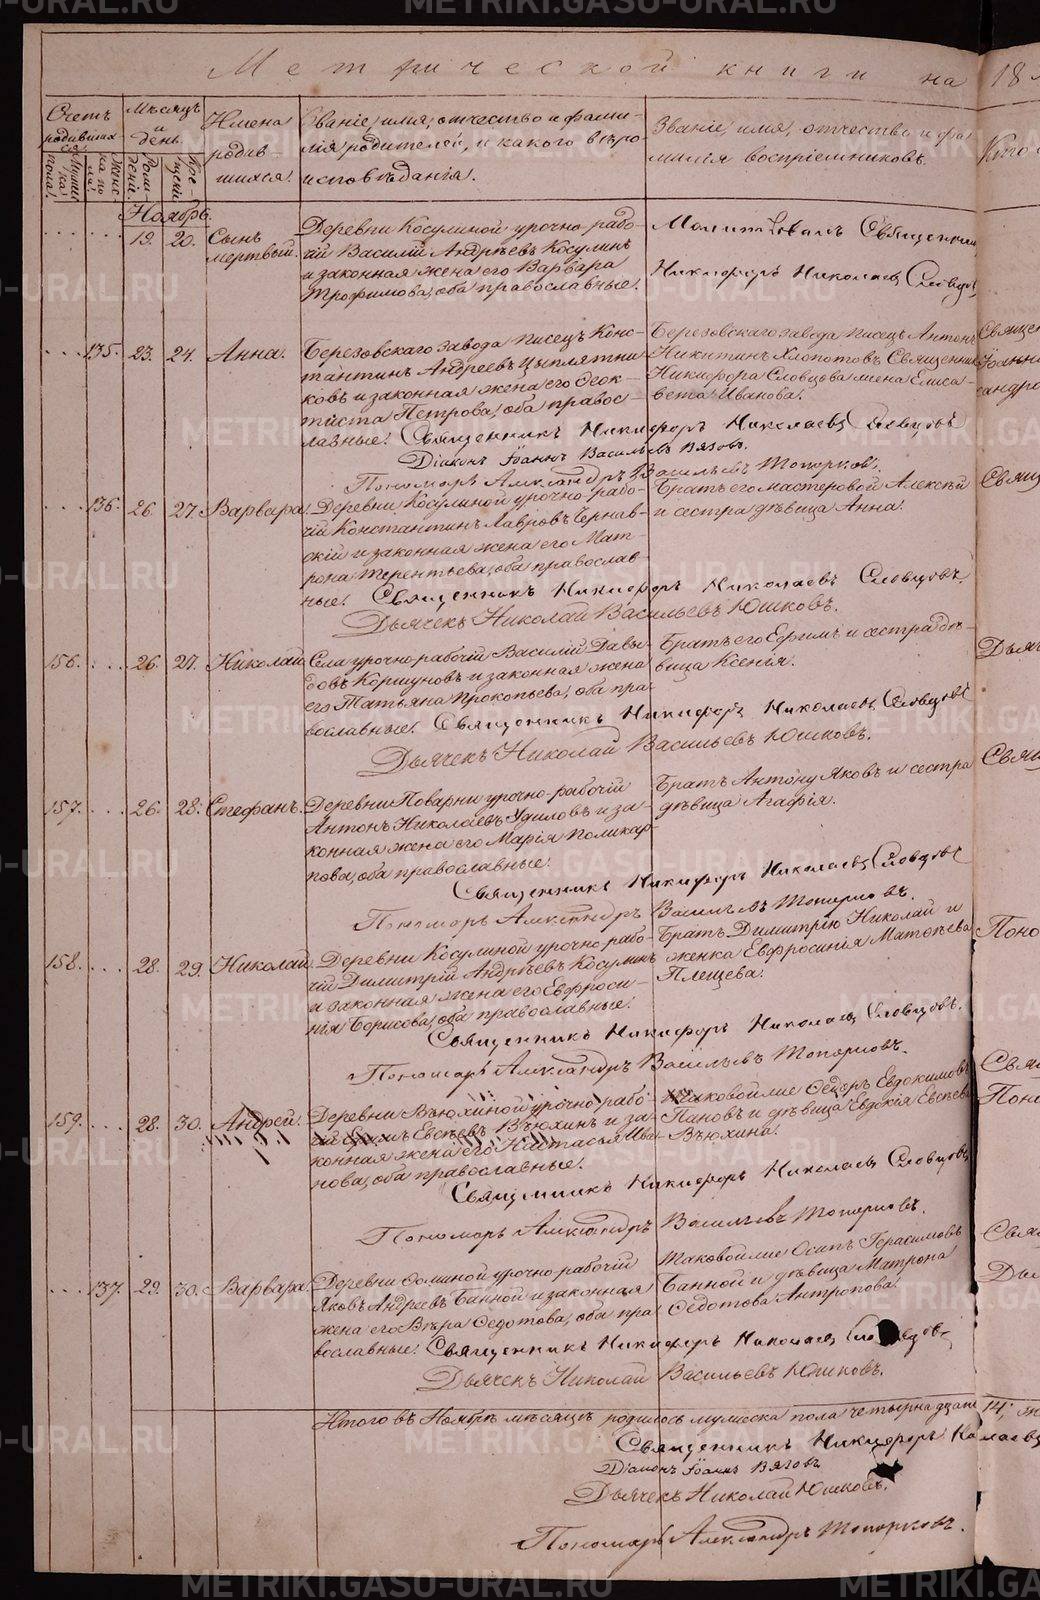 Метрической книги на 18
Счетъ родившихся.
Мужеска пола.
Женска пола.
Мѣсяцъ и день.
Рождения.
Крещения.
Имена родившихся.
Званіе, имя, отчество и фамилія родителей, и какого вѣроисповѣданія.
Званіе, имя, отчество и фамилія воспріемниковъ.
Кто с
Ноябрь.
19. 20. Сынъ мертвый.
Деревни Косулиной урочно-рабо-
чій Василій Андреевъ Косулинъ
и законная жена его Варвара
Трофимова, оба православные.
Молитвовалъ Священник
Никифоръ Николаевъ Словцовъ
135. 23. 24. Анна.
Березовскаго завода писецъ Конс-
тантинъ Андреевъ Цыплятни-
ковъ и законная жена его Феок-
тиста Петрова, оба правос-
лавные.
Березовскаго завода писецъ Антонъ
Никитинъ Хлопотовъ Священника
Никифора Словцова жена Елиса-
вета Иванова.
Священникъ Никифоръ Николаевъ Словцовъ
Діаконъ Іоаннъ Васильевъ Вяговъ.
Пономарь Александръ Васильевъ Топорковъ.
136. 26. 27. Варвара.
Деревни Косулиной урочно-рабо-
чій Константинъ Лавровъ Черняв-
скій и законная жена его Мат-
рона Терентьева, оба православ-
ные.
Братъ его мастеровой Алексѣй
и сестра дѣвица Анна.
Священникъ Никифоръ Николаевъ Словцовъ.
Дьячекъ Николай Васильевъ Юшковъ.
156. 26. 27. Николай
Села урочно-рабочій Василій Давы-
довъ Коршуновъ и законная жена
его Татьяна Прокопьева, оба пра-
вославные.
Братъ его Ефимъ и сестра дѣ-
вица Ксенья.
Священникъ Никифоръ Николаевъ Словцовъ
Дьячекъ Николай Васильевъ Юшковъ.
157. 26. 28. Стефанъ.
Деревни Поварни урочно-рабочій
Антонъ Николаевъ Удиловъ и за-
конная жена его Марія Поликар-
пова, оба православные.
Братъ Антону Яковъ и сестра
дѣвица Агафія.
Священникъ Никифоръ Николаевъ Словцовъ
Пономарь Александръ Васильевъ Топорковъ.
158. 28. 29. Николай
Деревни Косулиной урочно рабо-
чій Димитрій Андреевъ Косулинъ
и законная жена его Евфроси-
нія Борисова, оба православные.
Братъ Димитрію Николай и
женка Евфросинія Матвѣева
Плещева.
Священникъ Никифоръ Николаевъ Словцовъ.
Пономарь Александръ Васильевъ Топорковъ.
159. 28. 30. Андрей.
Деревни Вьюхиной урочно-рабо-
чій Ефимъ Евсѣевъ Вьюхинъ и за-
конная жена его Настасья Ива-
нова, оба православные.
Таковой же Федоръ Евдокимовъ
Пановъ и дѣвица Евдокія Евсѣева
Вьюхина.
Священникъ Никифоръ Николаевъ Словцовъ
Пономарь Александръ Васильевъ Топорковъ.
137. 29. 30. Варвара
Деревни Фоминой урочно-рабочій
Яковъ Андреевъ Банной и законная
жена его Вѣра Федотова, оба пра-
вославные.
Таковой же Осипъ Герасимовъ
Банной и дѣвица Матрона
Федотова Антропова.
Священникъ Никифоръ Николаевъ Словцовъ
Дьячекъ Николай Васильевъ Юшковъ.
Итого въ Ноябрѣ мѣсяцѣ родилось мужеска пола четырнадцать 14,
Священникъ Никифоръ Николаевъ
Діаконъ Іоаннъ Вяговъ
Дьячекъ Николай Юшковъ.
Пономарь Александръ Топорковъ.
METRIKI.GASO-URAL.RU